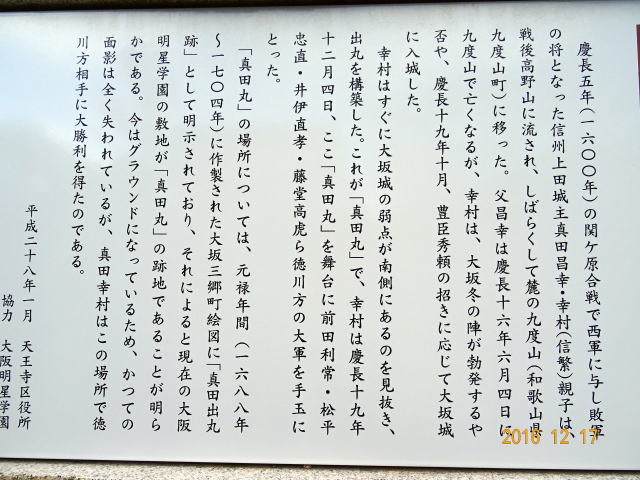 慶長五年(一六〇〇年)の関ケ原合戦で西軍に与し敗軍
の将となった信州上田城主真田昌幸・幸村(信繁)親子は、
戦後高野山に流され、しばらくして麓の九度山(和歌山県
九度山町)に移った。父昌幸は慶長十六年六月四日に
九度山で亡くなるが、幸村は、大坂冬の陣が勃発するや
否や、慶長十九年十月、豊臣秀頼の招きに応じて大坂城
に入城した。
幸村はすぐに大坂城の弱点が南側にあるのを見抜き、
出丸を構築した。これが「真田丸」で、幸村は慶長十九年
十二月四日、ここ「真田丸」を舞台に前田利常・松平
忠直・井伊直孝・藤堂高虎ら徳川方の大軍を手玉に
とった。
「真田丸」の場所については、元禄年間(一六八八年
〜一七〇四年)に作製された大坂三郷町絵図に「真田出丸
跡」として明示されており、それによると現在の大阪
明星学園の敷地が「真田丸」の跡地であることが明ら
かである。今はグラウンドになっているため、かつての
面影は全く失われているが、真田幸村はこの場所で徳
川方相手に大勝利を得たのである。
平成二十八年一月 天王寺区役所
協力 大阪明星学園
2016 12 17